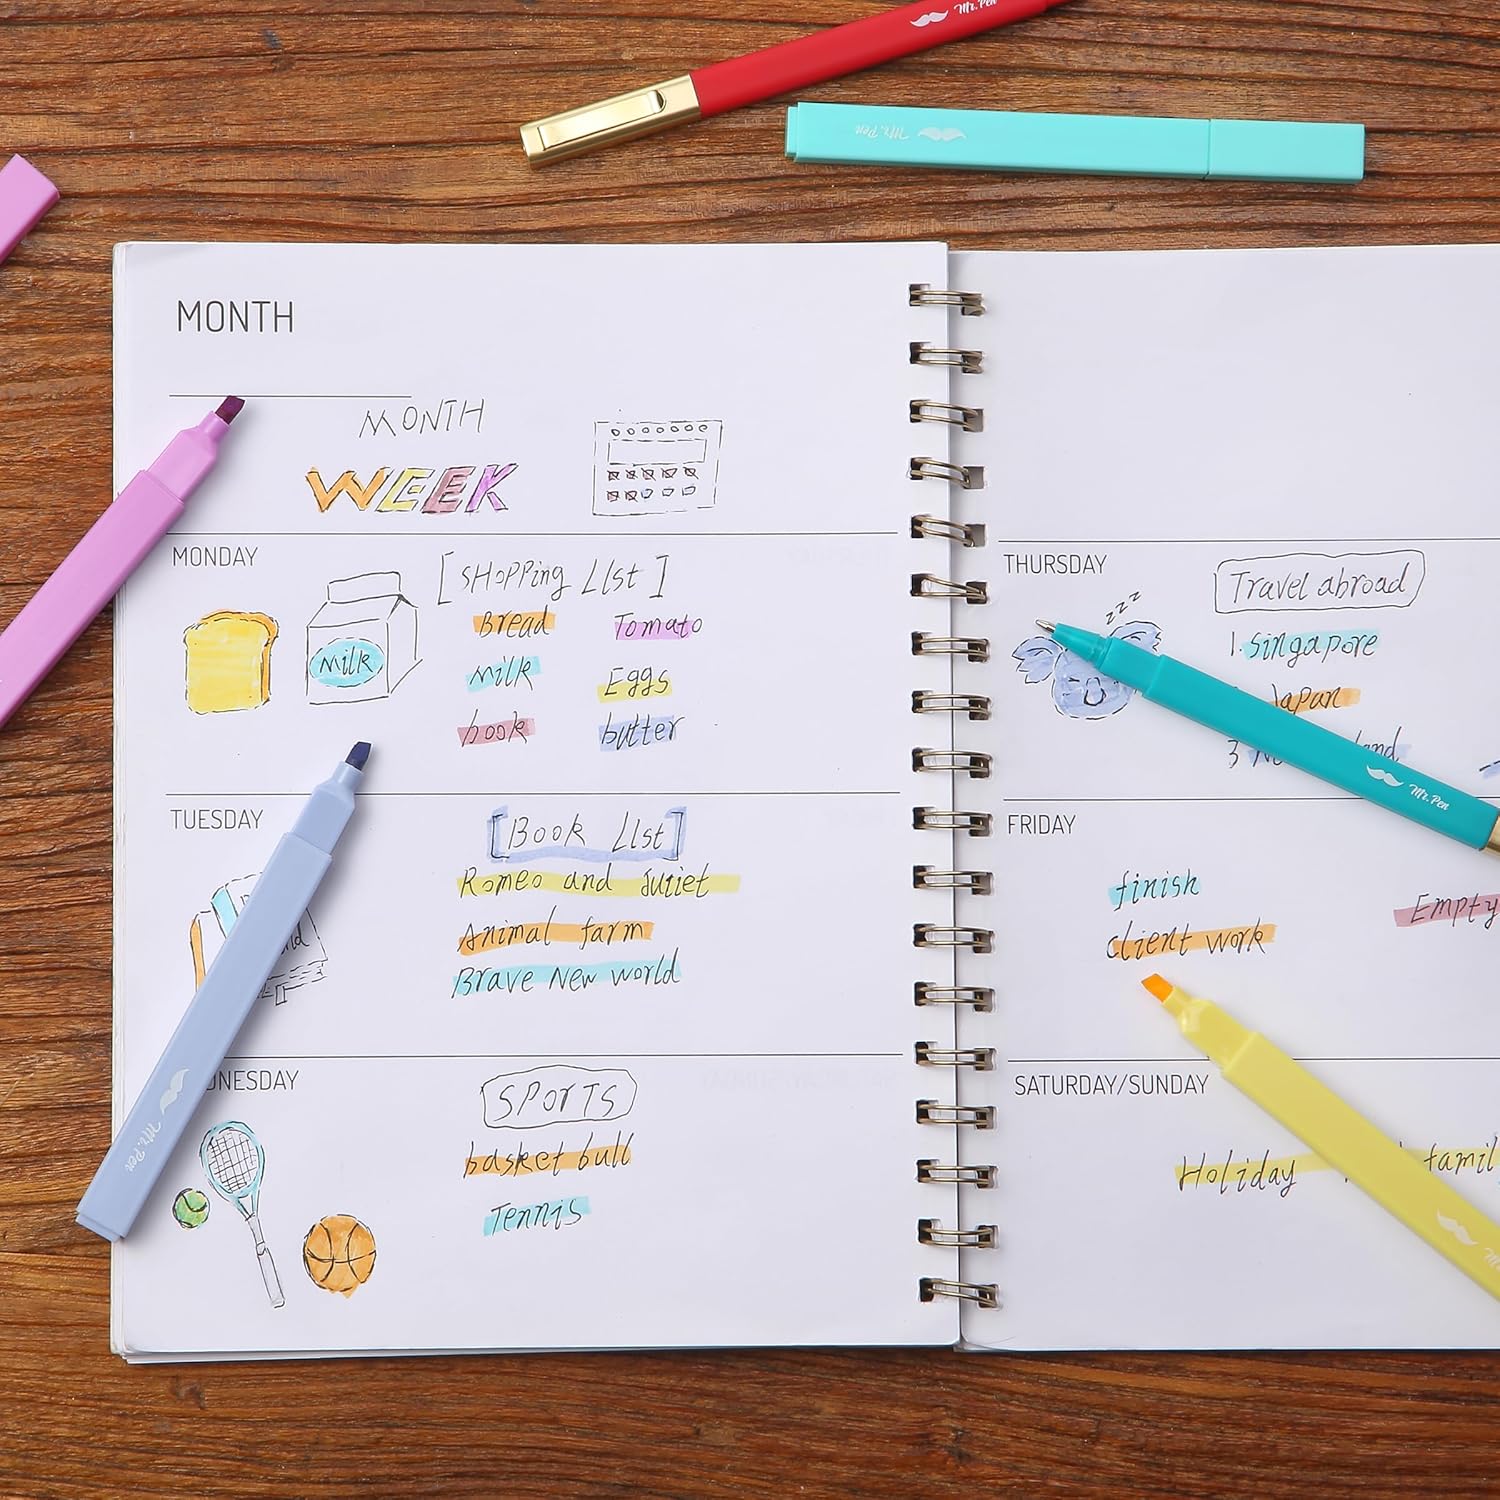 Mr. Pen
Mr. Pen
MONTH
MONTH
WEEK
MONDAY
[SHOPPing LIst]
Bread Tomato
Milk
milk Eggs
book butter
TUESDAY
[Book LIst]
Romeo and Juriet
Animal farm
Brave New world
SPORTS
basket bull
Tennis
Mr. Pen
THURSDAY
Travel abroad
zzz
1. singapore
Japan
3
Mr. Pen
FRIDAY
finish
client work
Empty
SATURDAY/SUNDAY
Holiday